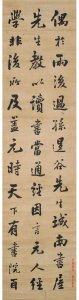 偶於雨後過孫退谷先生城南書屋
先生教以讀書當通經因言元人經
學非後所及蓋元時天下有書院百